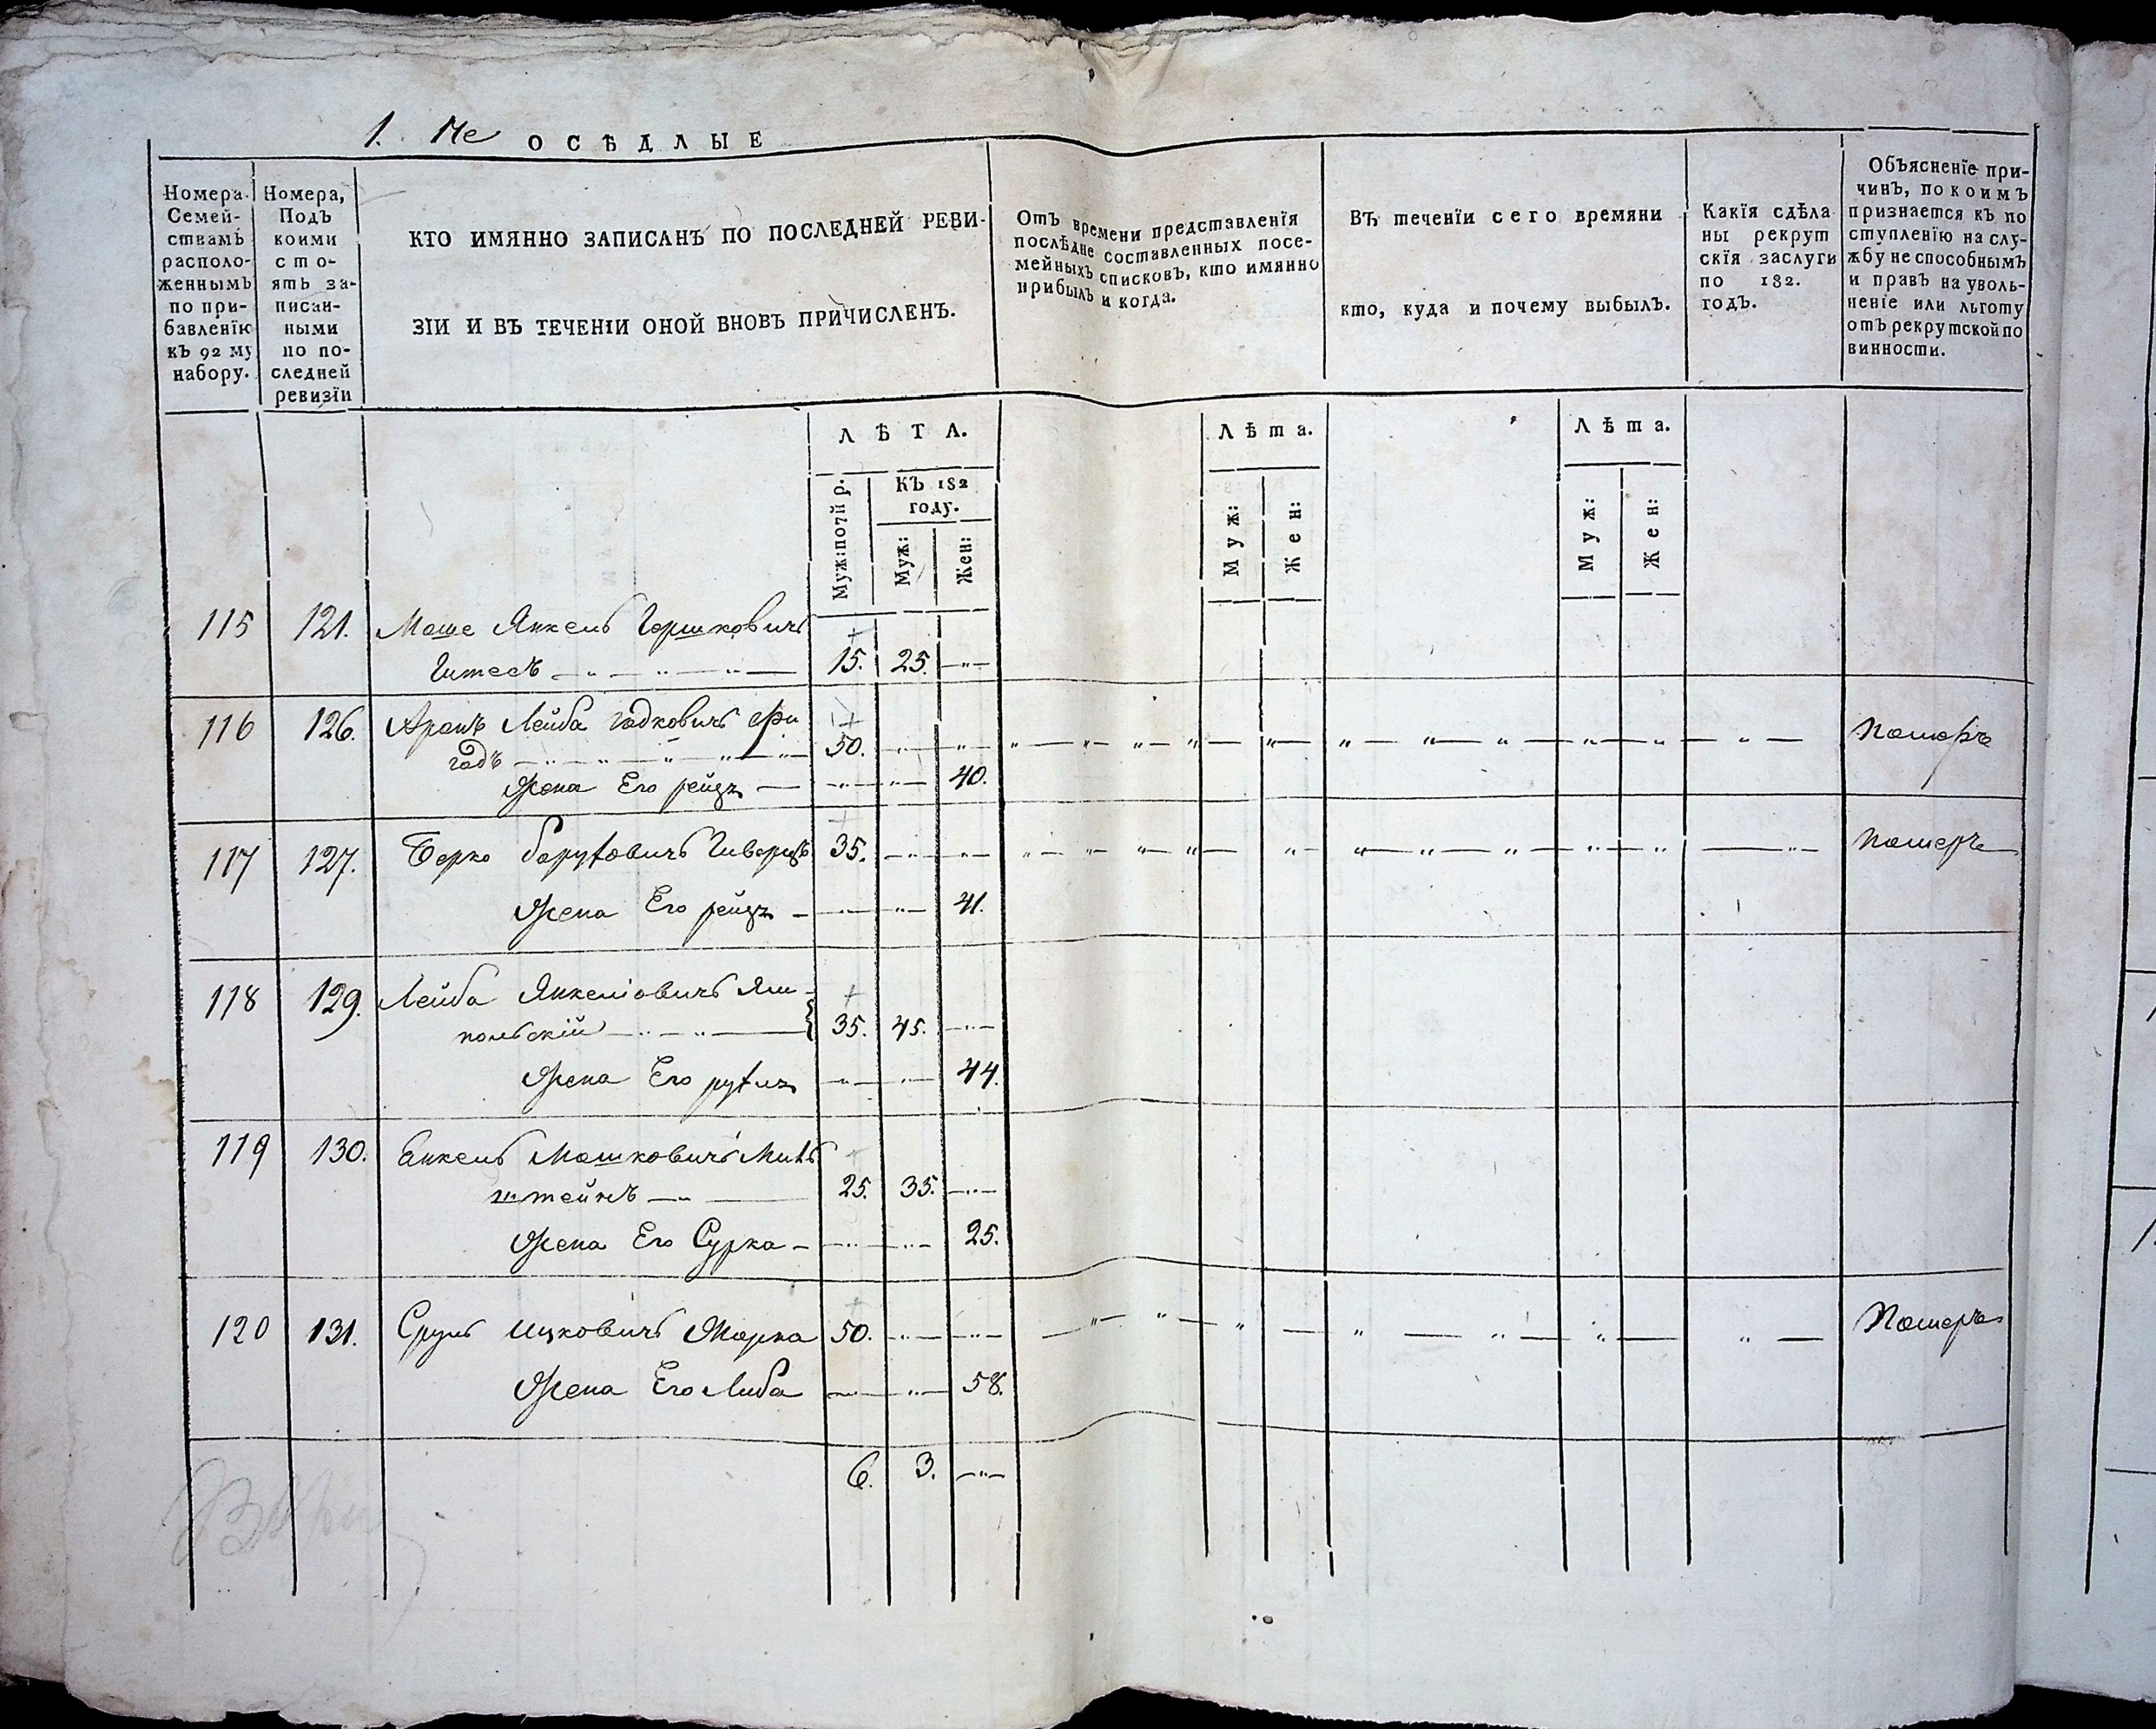 1. Не ОСѢДЛЫЕ
Номера
Семей-
ствамъ
располо-
женнымъ
по при-
бавленїю
къ 92 му
набору.
Номера,
Подъ
коими
сто-
ятъ за-
писан-
ными
по по-
следней
ревизїи
КТО ИМЯННО ЗАПИСАНЪ ПО ПОСЛЕДНЕЙ РЕВИ-
ЗІИ И ВЪ ТЕЧЕНІИ ОНОЙ ВНОВЪ ПРИЧИСЛЕНЪ.
Отъ времени представленїя
послѣдне составленныхъ посе-
мейныхъ списковъ, кто имянно
прибылъ и когда.
Въ теченїи сего времяни
кто, куда и почему выбылъ.
Какїя сдѣла
ны рекрут
скїя заслуги
по 182.
годъ.
Объясненїе при-
чинъ, по коимъ
признается къ по
ступленїю на слу-
жбу не способнымъ
и правъ на уволь-
ненїе или льготу
отъ рекрутской по
винности.
ЛѢТА.
Муж: по 7й р.
КЪ 182
году.
Муж:
Жен:
Лѣта.
Муж:
Жен:
Лѣта.
Муж:
Жен:
115 121. Моше Янкель Гершковичъ
Гитесъ 15. 25.
116 126. Аронъ Лейба гадковичъ фри
гадъ 50. Померъ
Жена Его рейзя 40.
117 127. Берко борухович 35. Померъ
Жена Его рейзя 41.
118 129. Лейба Янкеліовичъ Ям-
польскій 35. 45.
Жена Его рухля 44.
119 130. Енкель Мошковичъ Миль
штейнъ 25. 35.
Жена Его Сурка 25.
120 131. Сруль Ицковичъ Жорка 50. Померъ
Жена Его Либа 58.
6. 3.